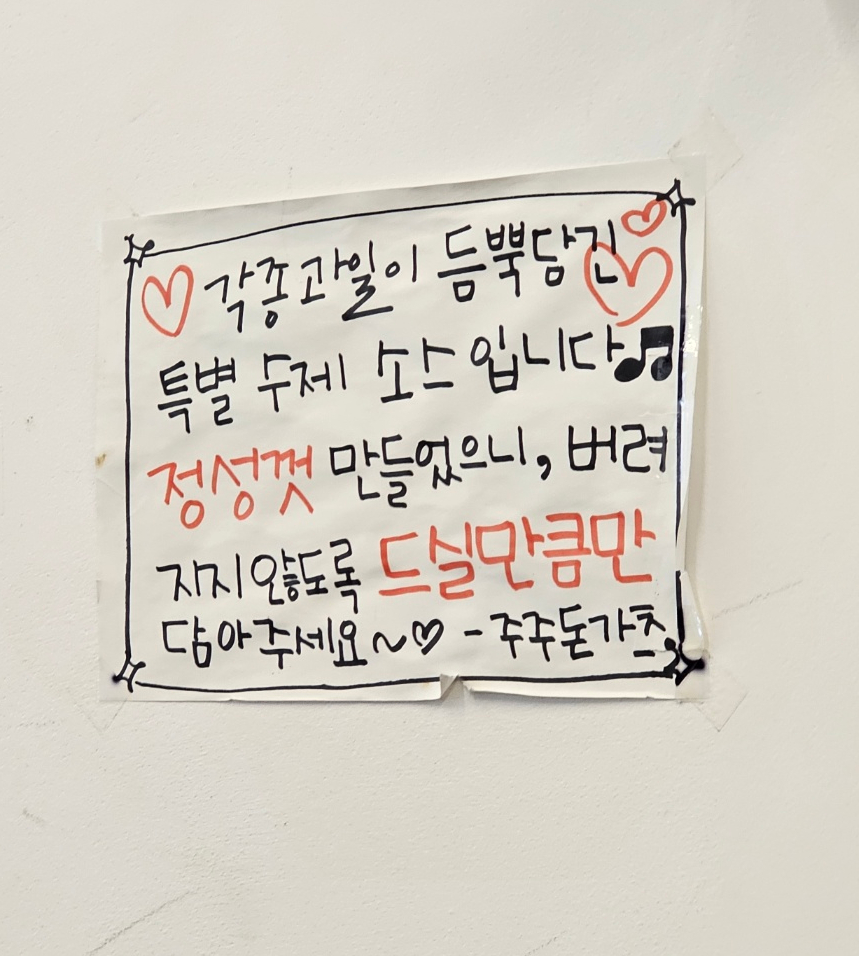 ♡ 각종과일이 듬뿍담긴 ♡♡
특별 수제 소스 입니다♫
정성껏 만들었으니, 버려
지지않도록 드실만큼만
담아주세요~♡ -주주돈가츠